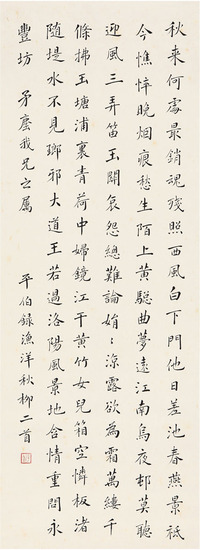 秋来何處最銷魂殘照西風白下門他日差池春燕景祗
今憔悴晚烟痕愁生陌上黃驄曲夢遠江南烏夜邨莫聽
迎風三弄笛玉關哀怨總難論娟〻涼露欲為霜萬縷千
條拂玉塘浦裏青荷中婦鏡江干黃竹女兒箱空憐板渚
隨堤水不見瑯邪大道王若過洛陽風景地含情重問永
豐坊 矛塵我兄之屬
平伯録漁洋秋柳二首